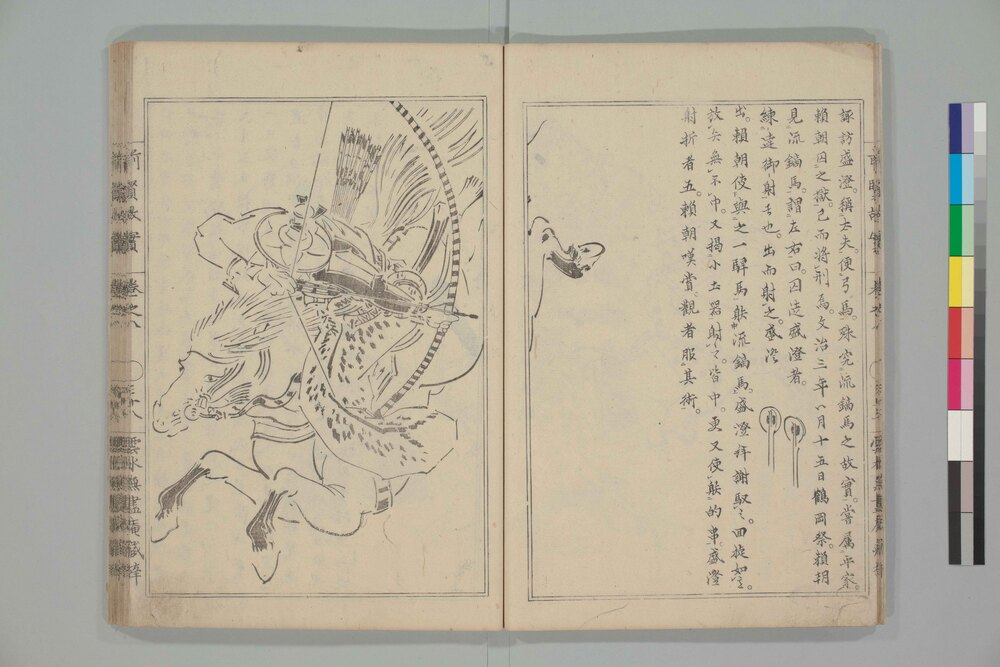 諏訪盛澄。稱大夫。便弓馬。殊究流鏑馬之故實。嘗属平家。
賴朝囚之獄。已而將刑焉。文治三年八月十五日鶴岡祭。賴朝
見流鏑馬。謂左右曰。囚徒盛澄者。
練達御射者也。出而射之。盛澄
出。賴朝使與之一驛馬躾流鏑馬。盛澄拜謝馭之。回旋如意。
放矢無不中。又揭小土器射之。皆中。更又使躾的串。盛澄
射折者五。賴朝嘆賞。觀者服其術。
雲水無盡庫藏梓